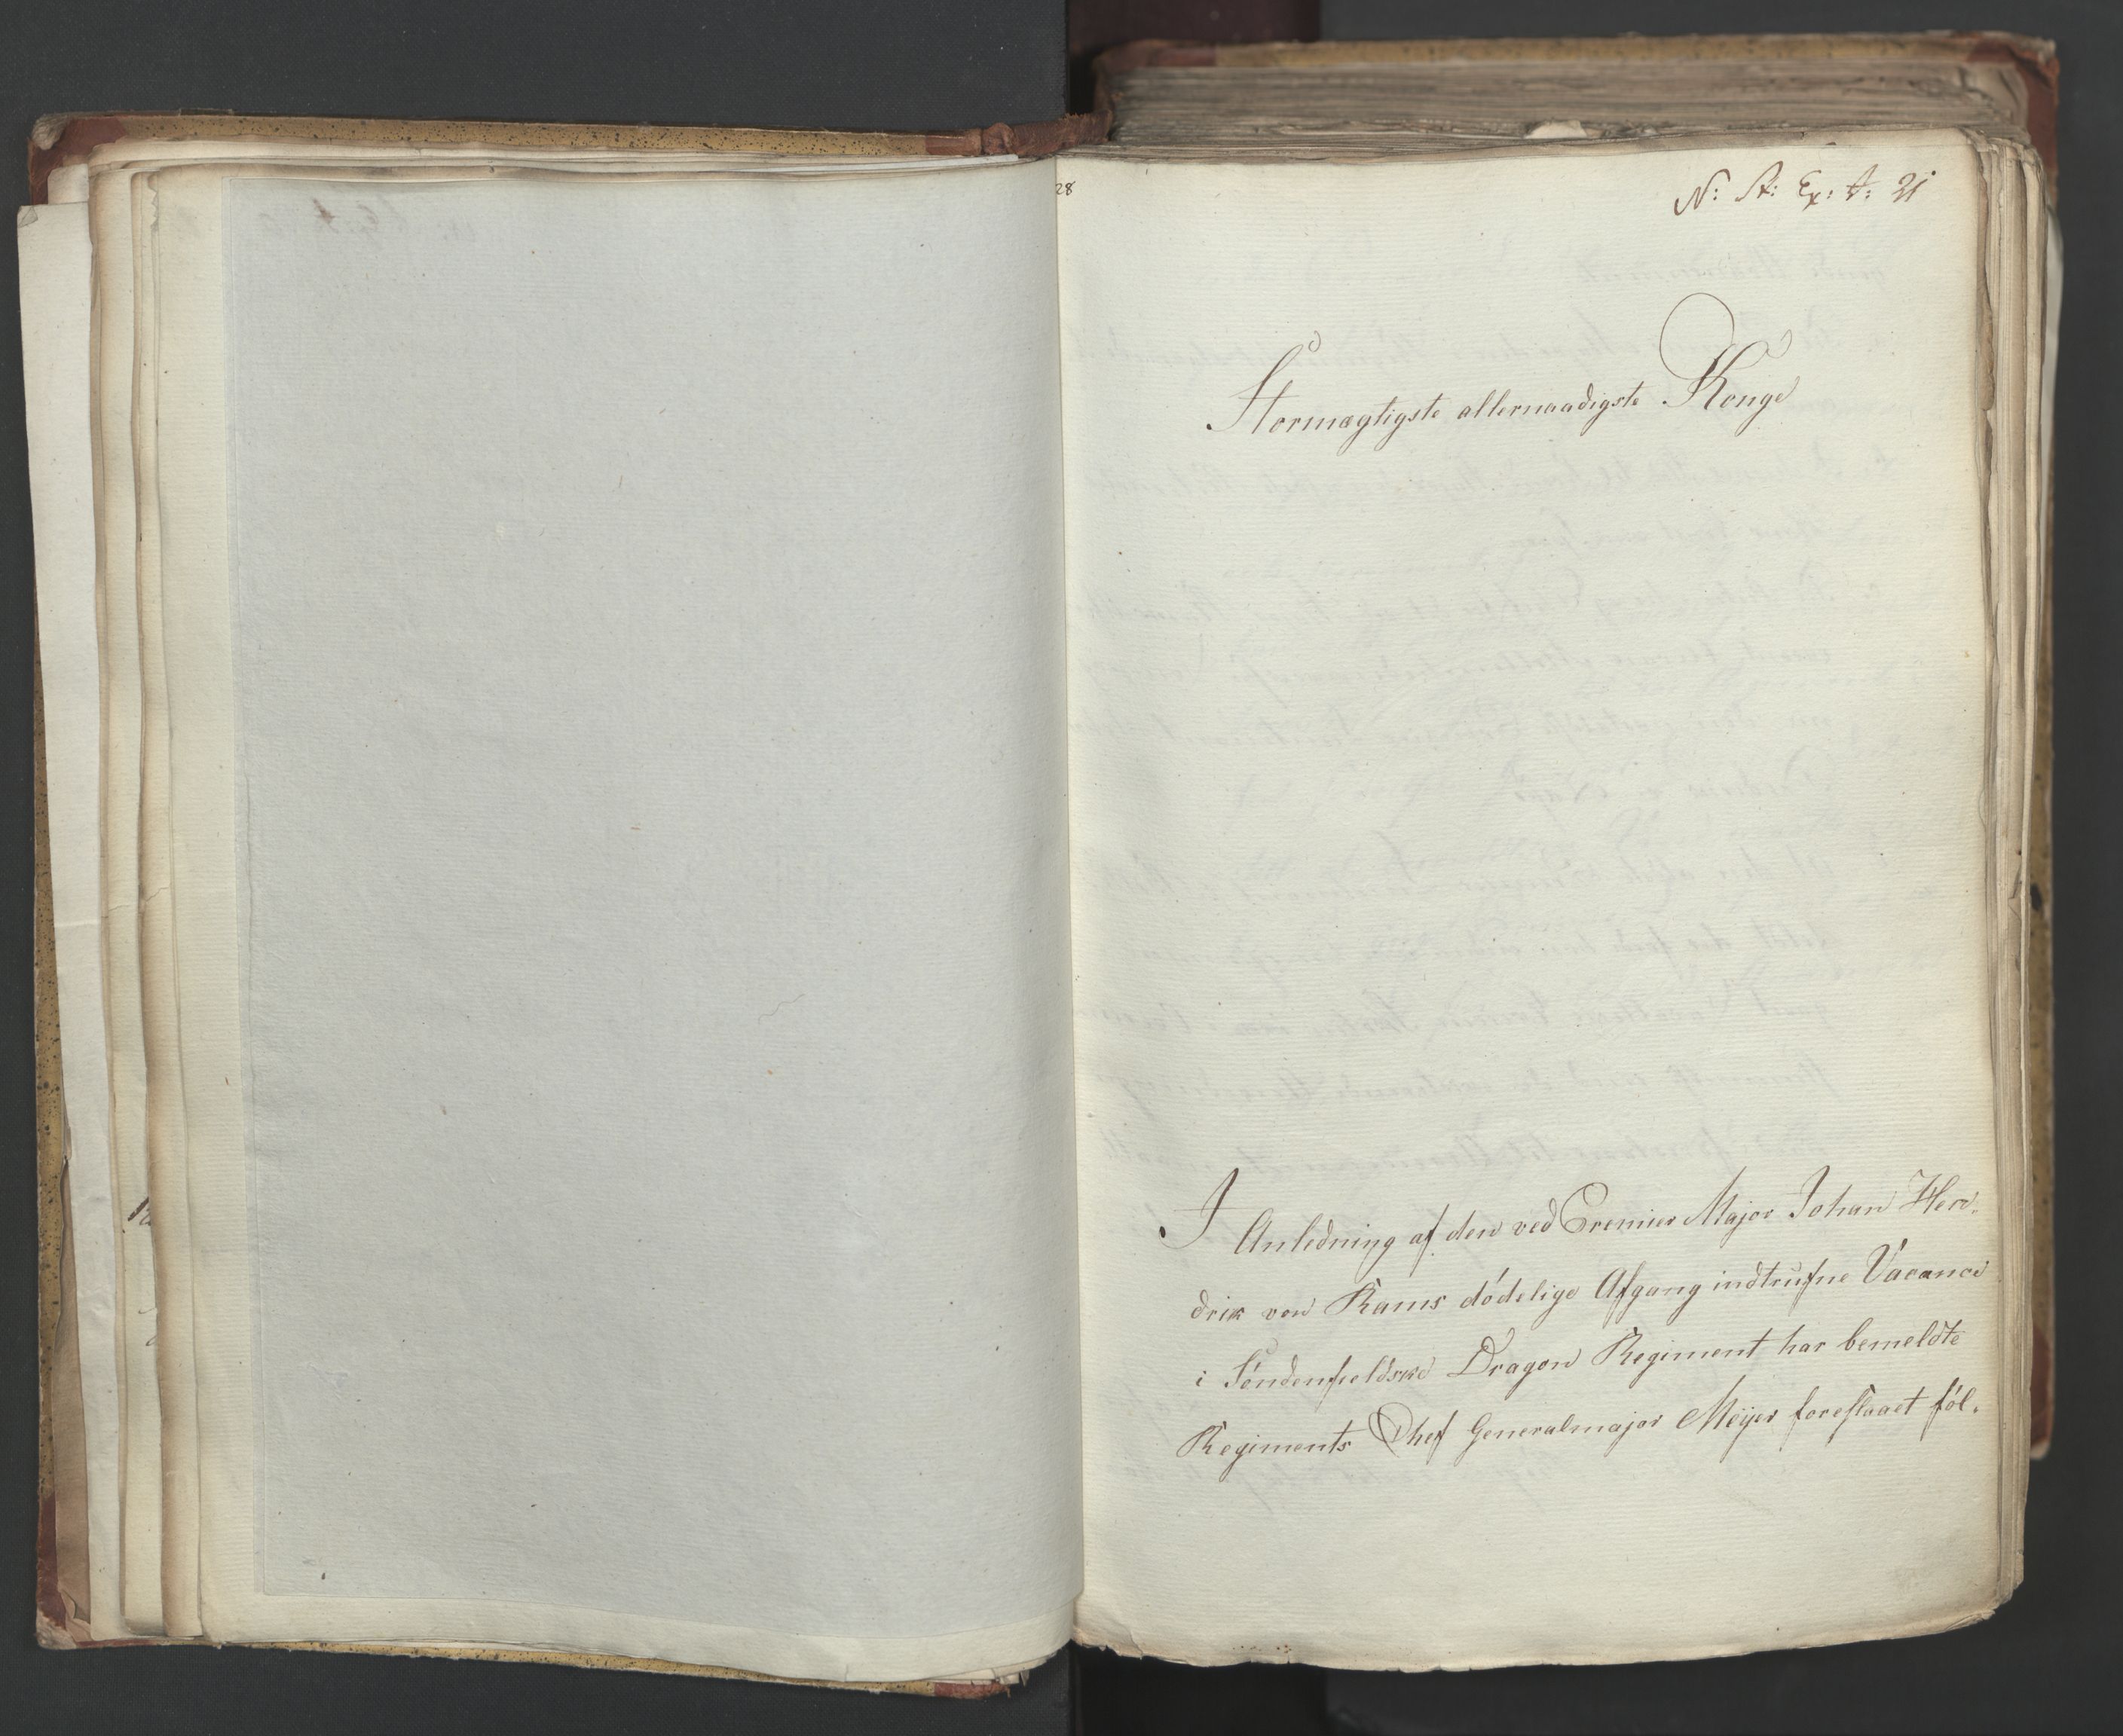 28
N: St: Ex: A: 21
Stormægtigste allernaadigste Konge
I Anledning af den ved Premier Major Johan Hen-
drik von Rams dödelige Afgang indtrufne Vacance
i Söndenfieldske Dragon Regiment har bemeldte
Regiments Chef Generalmajor Meÿer foreslaaet föl-